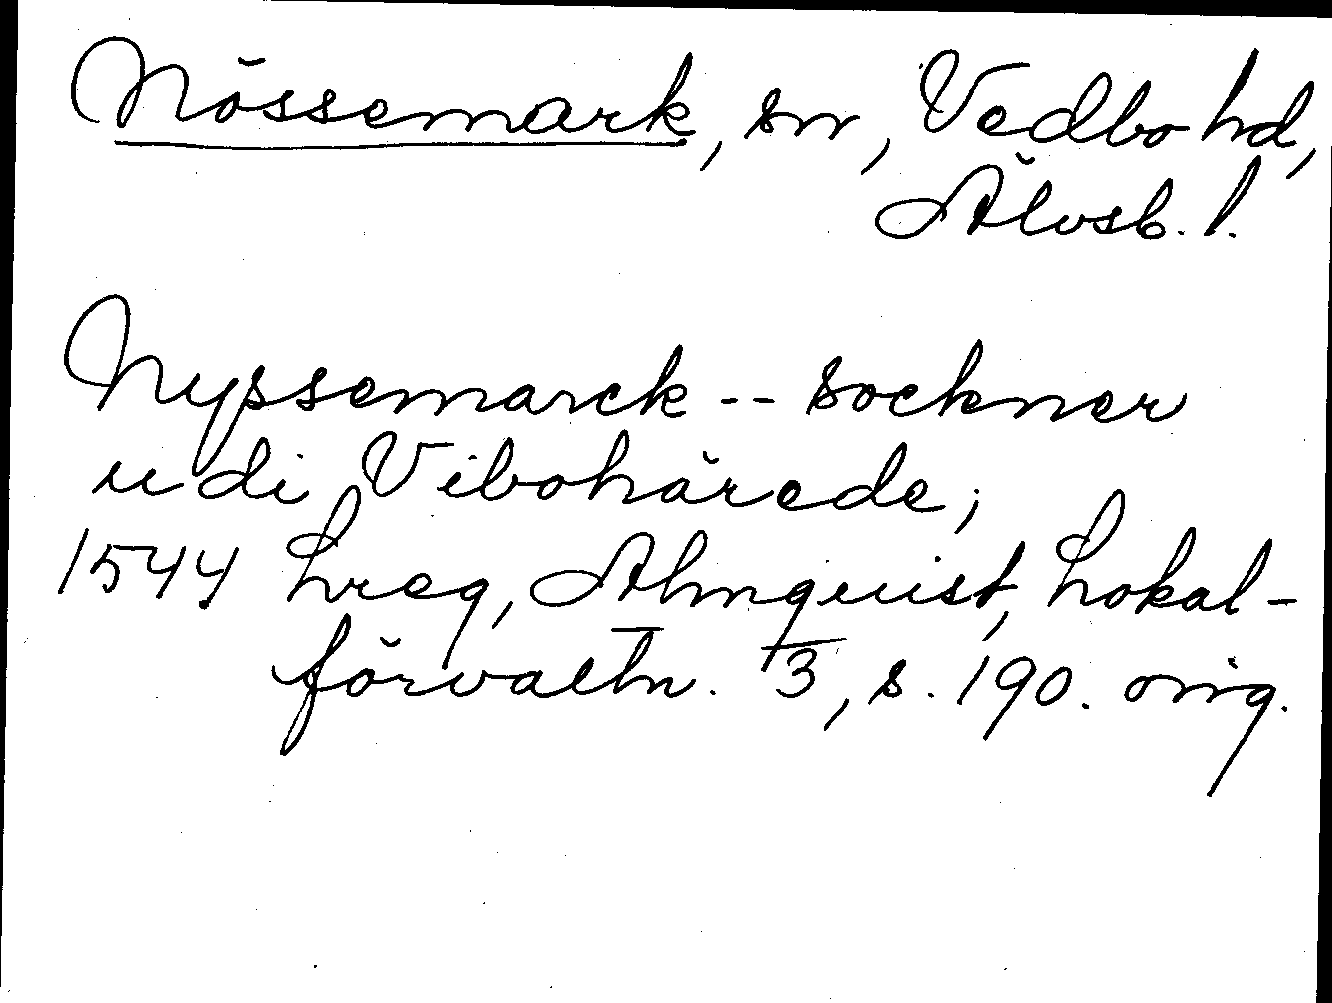 Nössemark, sn, Vedbo hd,
Älvsb. l.
Nyssemarck -- sockner
udi Vibohärede;
1544 Lreg, Almquist, Lokal-
förvaltn. 3, s. 190. orig.